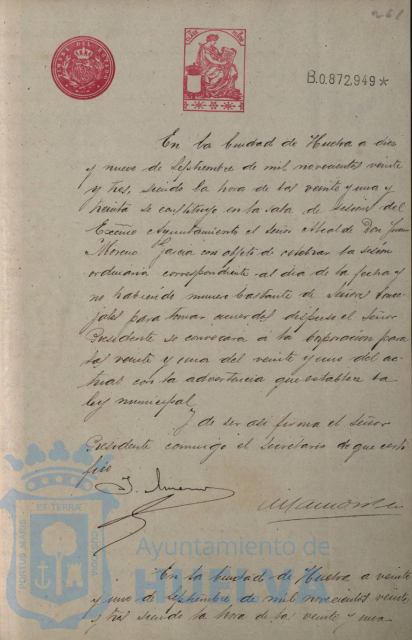 261
TIMBRE DEL ESTADO
B.0.872,949*
En la Ciudad de Huelva a diez
y nueve de Septiembre de mil novecientos veinte
y tres, siendo la hora de las veinte y una y
treinta se constituyó en la sala de sesiones del
Excmo Ayuntamiento el señor Alcalde Don Juan
Moreno Garcia con objeto de celebrar la sesión
ordinaria correspondiente al dia de la fecha y
no habiendo numero bastante de Señores Conce-
jales para tomar acuerdos dispuso el Señor
Presidente se convocara á la Corporación para
las veinte y una del veinte y uno del ac-
tual con la advertencia que establece la
ley municipal.
Y de ser asi firma el Señor
Presidente conmigo el Secretario de que certi
fico
J. Moreno
PORTUS MARIS ET TERRÆ CUSTODIA
Ayuntamiento de
HUELVA
En la Ciudad de Huelva a veinte
y uno de Septiembre de mil novecientos veinte
y tres siendo la hora de las veinte y una